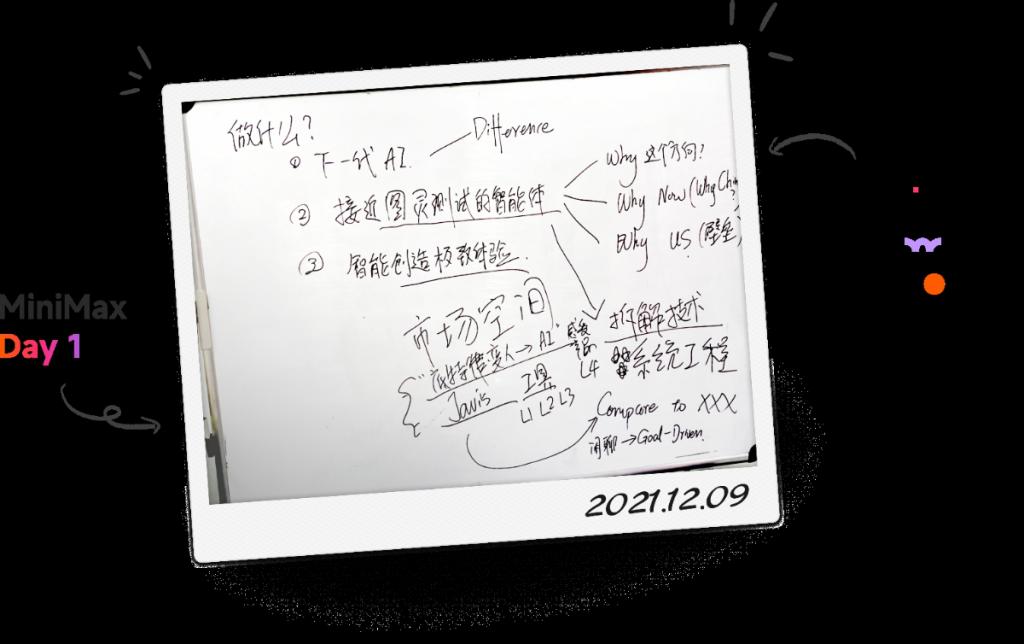 MiniMax
Day 1
做什么?
① 下一代 AI. Difference
② 接近图灵测试的智能体
Why 这个方向?
Why Now (Why Cha
Why US (壁垒)
③ 智能创造极致体验.
市场空间
底特律变人→AI
Javis
工具
L1 L2 L3
L4
拆解技术
系统工程
Compare to XXX
闲聊→Goal-Driven
2021.12.09